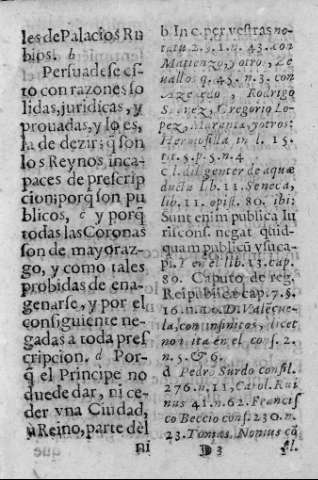 les de Palacios Ru
bios. b
Persuadese es
to con razones so
lidas, juridicas, y
prouadas, y lo es,
la de dezir; q̃ son
los Reynos, inca-
paces de prescrip
cion: porq̃ son pu
blicos, c y porq̃
todas las Coronas
son de mayoraz-
go, y como tales
probidas de ena-
genarse, y por el
consiguiente ne-
gadas a toda pres
cripcion. d Por-
q̃ el Principe no
puede dar, ni ce-
der vna Ciudad,
u Reino, parte dèl
ni
b. In c. per vestras no-
tatu 2. §. 1. n. 43. con
Matienzo, y otro, Ze
uallos q. 45. n. 3. con
Azeuedo, Rodrigo
Suarez, Gregorio Lo-
pez, Maranta, y otros:
Hermosilla in l. 15.
tit. 5. p. 5. n. 4
c l. diligenter de aquæ
ductu lib. 11. Seneca,
lib. 11. epist. 80. ibi:
Sunt enim publica Iu
riscons. negat quid-
quam publicũ vsuca-
pi. 7 en el lib. 13. cap.
80. Caputo de reg.
Reipublicæ cap. 7. §.
16. n. 20. D. Valẽçue-
la, con infinitos, licet
non ita en el cons. 2.
n. 5. & 6.
d Pedro Surdo consil.
276. n. 11, Carol. Rui
nus 41. n. 62. Francis
co Beccio cons. 230. n.
23. Tomas. Nonius cõ
D 3 sil.